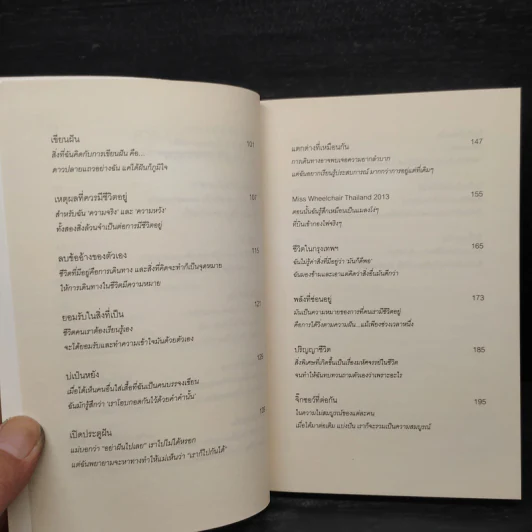 เขียนฝัน
สิ่งที่ฉันคิดกับการเขียนฝัน คือ...
ดาวปลายแถวอย่างฉัน แค่ได้ฝันก็ภูมิใจ
เหตุผลที่ควรมีชีวิตอยู่
สำหรับฉัน 'ความจริง' และ 'ความหวัง'
ทั้งสองสิ่งล้วนจำเป็นต่อการมีชีวิตอยู่
ลบข้ออ้างของตัวเอง 111
ชีวิตที่มีอยู่คือการเดินทาง และสิ่งที่คิดจะทำก็เป็นจุดหมาย
ให้การเดินทางในชีวิตมีความหมาย
ยอมรับในสิ่งที่เป็น 121
ชีวิตคนเราต้องเรียนรู้เอง
จะได้ยอมรับและทำความเข้าใจมันด้วยตัวเอง
บ่เป็นหยัง
เมื่อได้เห็นคนอื่นใส่เสื้อที่ฉันเป็นคนบรรจงเขียน
ฉันมักรู้สึกว่า 'เราโอบกอดกันไว้ด้วยคำคำนั้น'
เปิดประตูฝัน
แม่บอกว่า "อย่าฝันไปเลย" เราไปไม่ได้หรอก
แต่ฉันพยายามจะหาทางทำให้แม่เห็นว่า "เราก็ไปกันได้"
แตกต่างที่เหมือนกัน 147
การเดินทางอาจพบเจอความยากลำบาก
แต่ฉันอยากเรียนรู้ประสบการณ์ มากกว่าการอยู่แต่ที่เดิมๆ
Miss Wheelchair Thailand 2013 155
ตอนนั้นฉันรู้สึกเหมือนเป็นแมลงโง่ๆ
ที่บินเข้ากองไฟจริงๆ
ชีวิตในกรุงเทพฯ 165
ฉันไม่รู้ค่าสิ่งที่มีอยู่ว่า 'มันก็ดีพอ'
ฉันมองข้ามและเอาแต่คิดว่าสิ่งอื่นมันดีกว่า
พลังที่ซ่อนอยู่ 173
มันเป็นความหมายของการที่คนเรามีชีวิตอยู่
คือการได้วิ่งตามความฝัน...แม้เพียงช่วงเวลาหนึ่ง
ปริญญาชีวิต 185
สิ่งพิเศษที่เกิดขึ้นเป็นเรื่องมหัศจรรย์ในชีวิต
จนทำให้ฉันทบทวนถามตัวเองว่าเพราะอะไร
จิ๊กซอว์ที่ต่อกัน 195
ในความไม่สมบูรณ์ของแต่ละคน
เมื่อได้มาต่อเติม แบ่งปัน เราก็จะรวมเป็นความสมบูรณ์